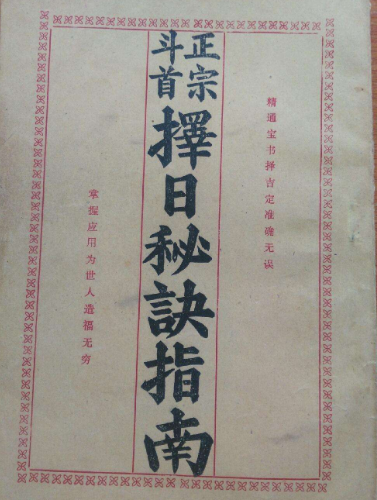 精通宝书择吉定准确无误
正宗
斗首
擇日秘訣指南
掌握应用为世人造福无穷